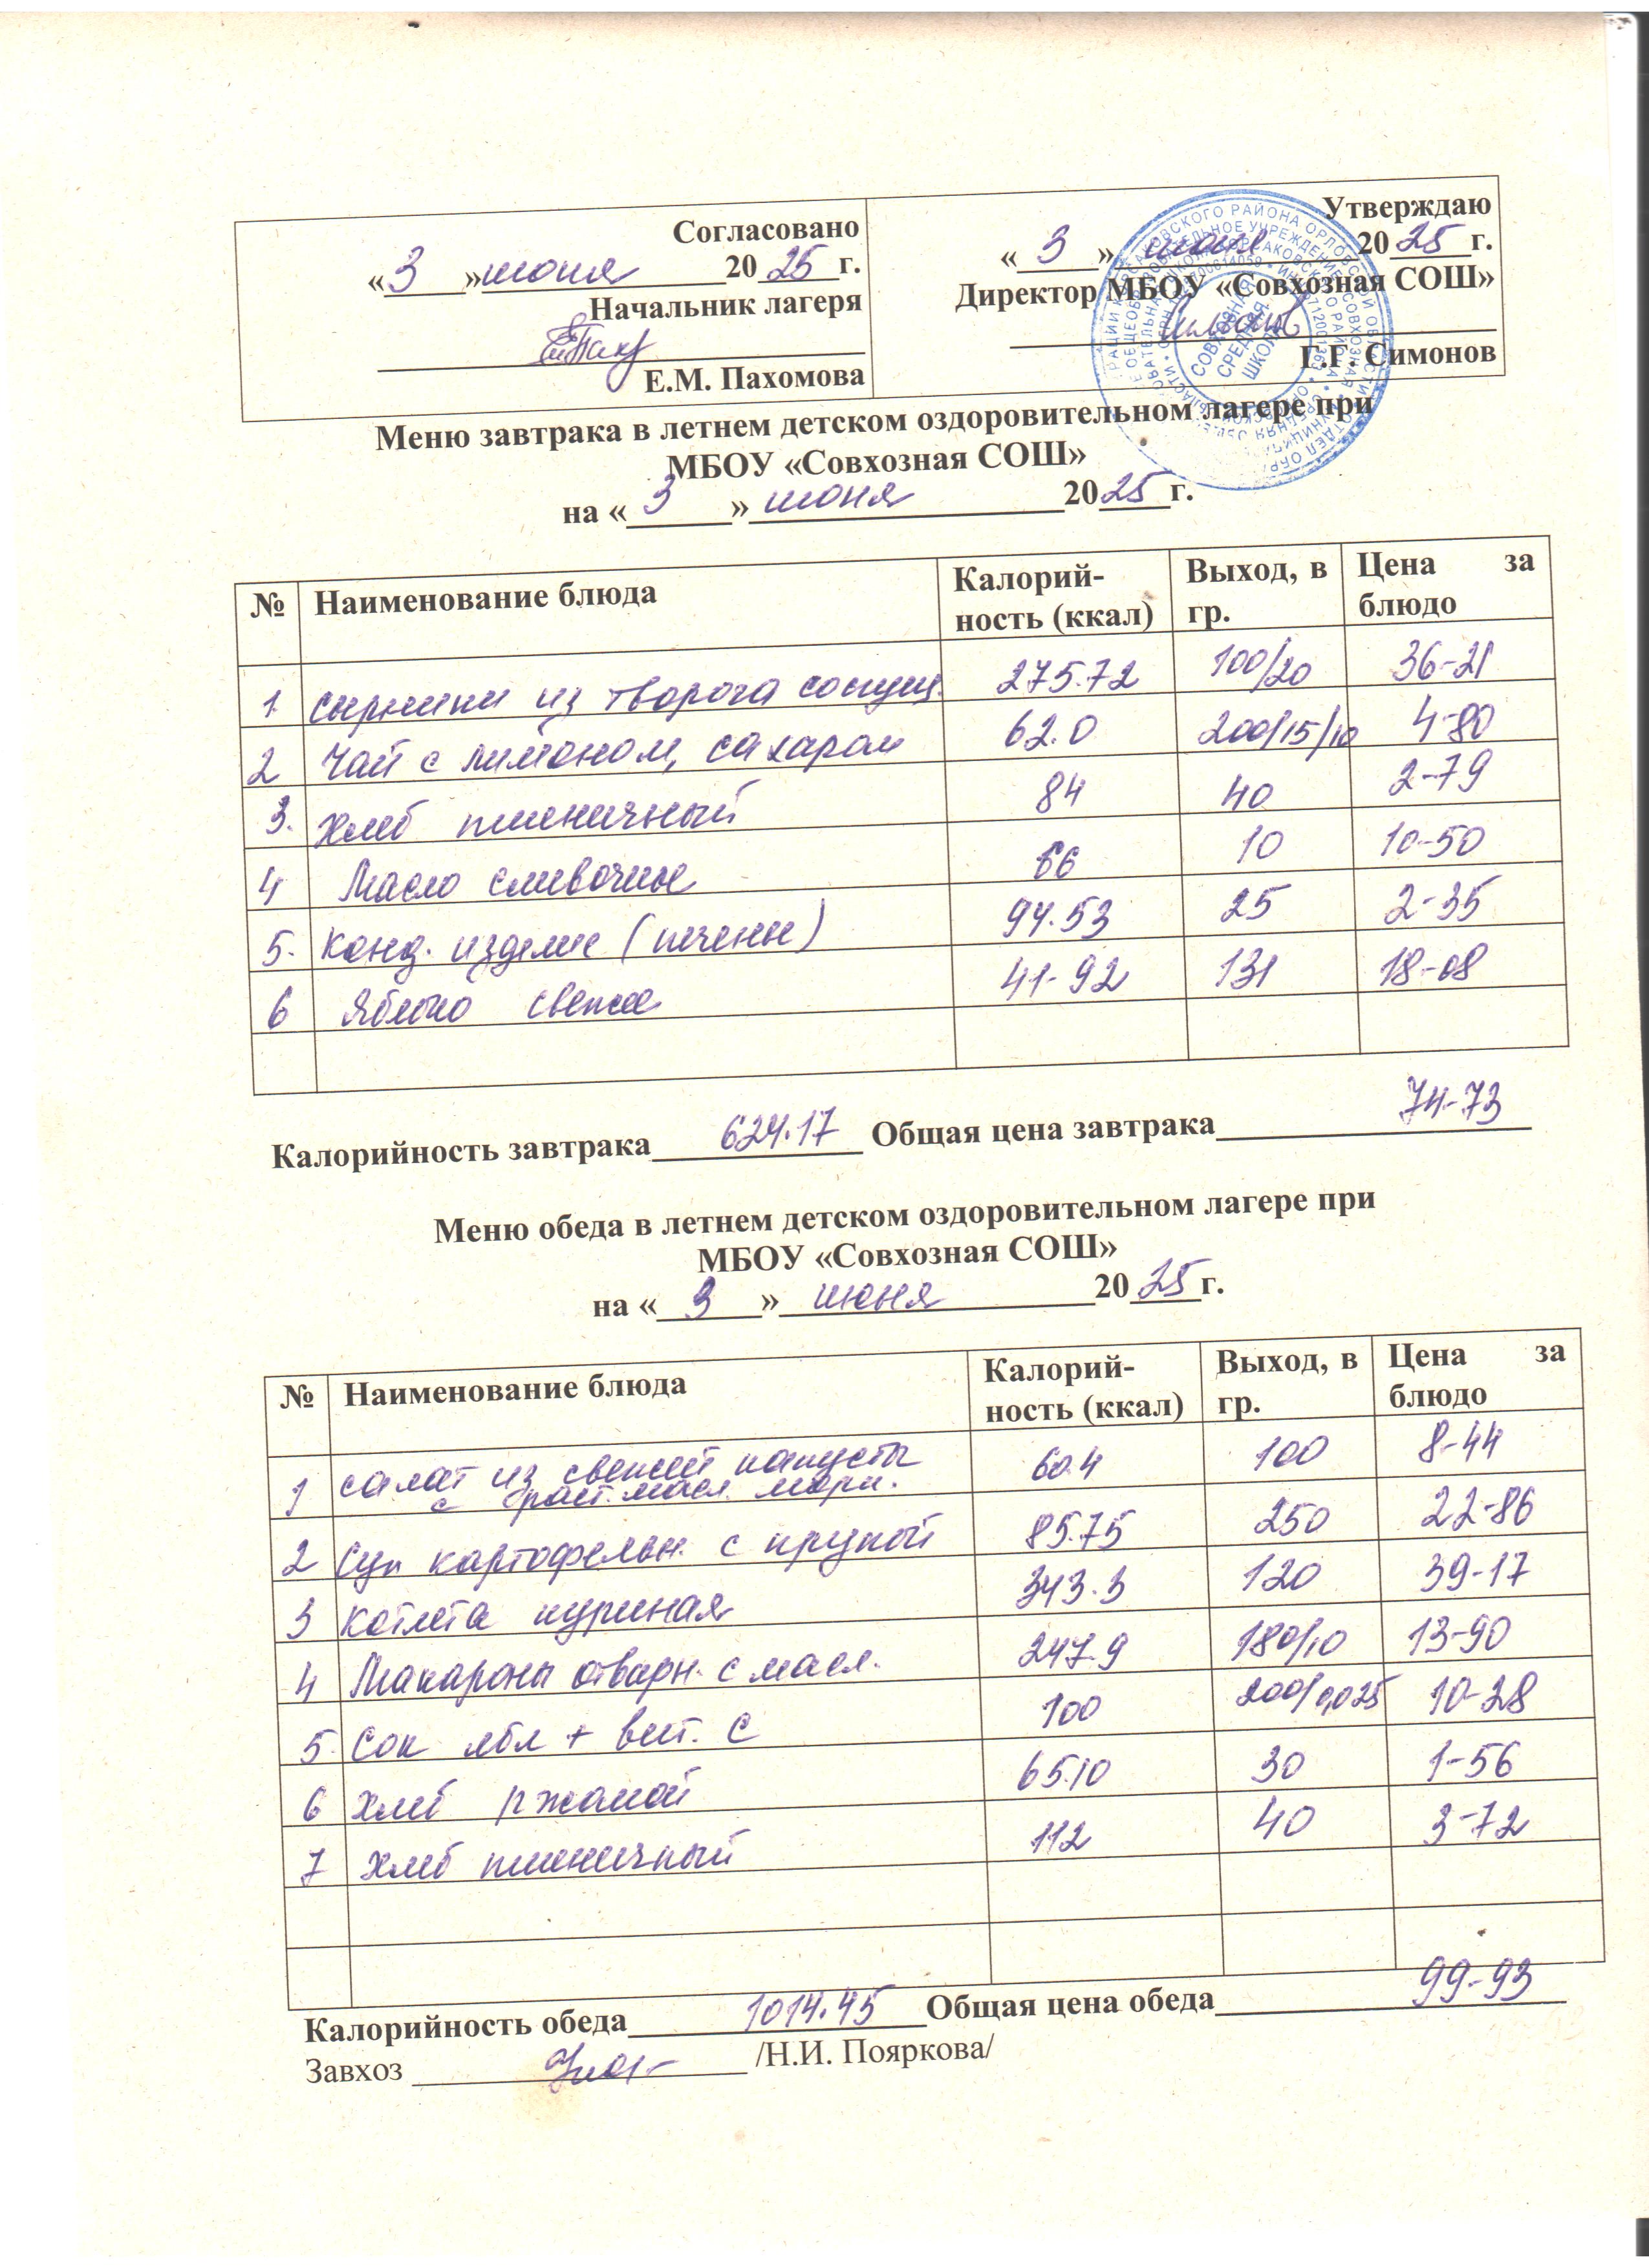 Согласовано
«3» июня 2025г.
Начальник лагеря
Е.М. Пахомова
Утверждаю
«3» июня 2025г.
Директор МБОУ «Совхозная СОШ»
Г.Г. Симонов
СОВХОЗНАЯ
СРЕДНЯЯ
ШКОЛА
Меню завтрака в летнем детском оздоровительном лагере при
МБОУ «Совхозная СОШ»
на «3» июня 2025г.
№ Наименование блюда Калорий-ность (ккал) Выход, в гр. Цена за блюдо
1 Сырники из творога со сгущ. 275.72 100/20 36-21
2 Чай с лимоном, сахаром 62.0 200/15/10 4-80
3. Хлеб пшеничный 84 40 2-79
4 Масло сливочное 66 10 10-50
5. Конд. изделие (печенье) 94.53 25 2-35
6 Яблоко свежее 41-92 131 18-08
Калорийность завтрака 624.17 Общая цена завтрака 74-73
Меню обеда в летнем детском оздоровительном лагере при
МБОУ «Совхозная СОШ»
на «3» июня 2025г.
№ Наименование блюда Калорий-ность (ккал) Выход, в гр. Цена за блюдо
1 Салат из свежей капусты 60.4 100 8-44
с раст. масл. морк.
2 Суп картофельн. с крупой 85.75 250 22-86
3 Котлета куриная 343.3 120 39-17
4 Макароны отварн. с масл. 247.9 180/10 13-90
5. Сок ябл + вит. С 100 200/0,025 10-28
6 Хлеб ржаной 65.10 30 1-56
7 Хлеб пшеничный 112 40 3-72
Калорийность обеда 1014.45 Общая цена обеда 99-93
Завхоз /Н.И. Пояркова/